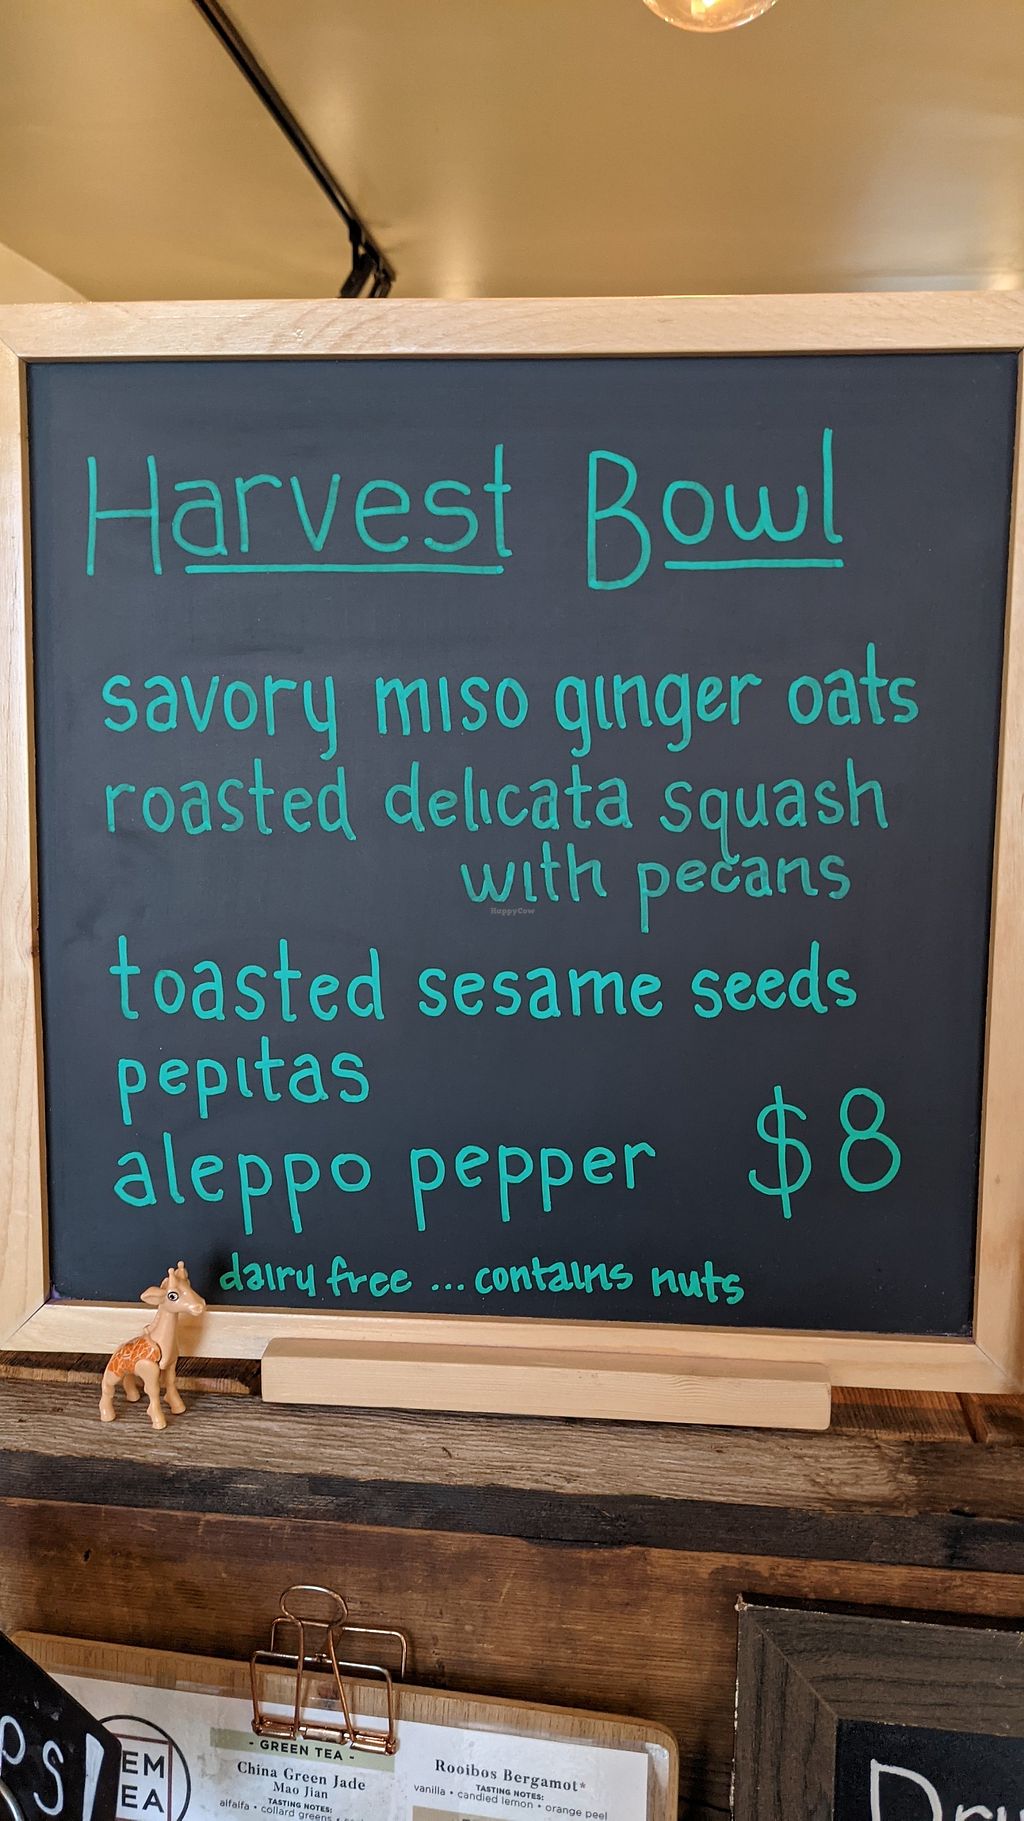 Harvest Bowl
savory miso ginger oats
roasted delicata squash
with pecans
HappyCow
toasted sesame seeds
pepitas
aleppo pepper $8
dairy free ... contains nuts
PS
EM
EA
- GREEN TEA -
China Green Jade
Mao Jian
TASTING NOTES:
alfalfa • collard greens •
Rooibos Bergamot*
TASTING NOTES:
vanilla • candied lemon • orange peel